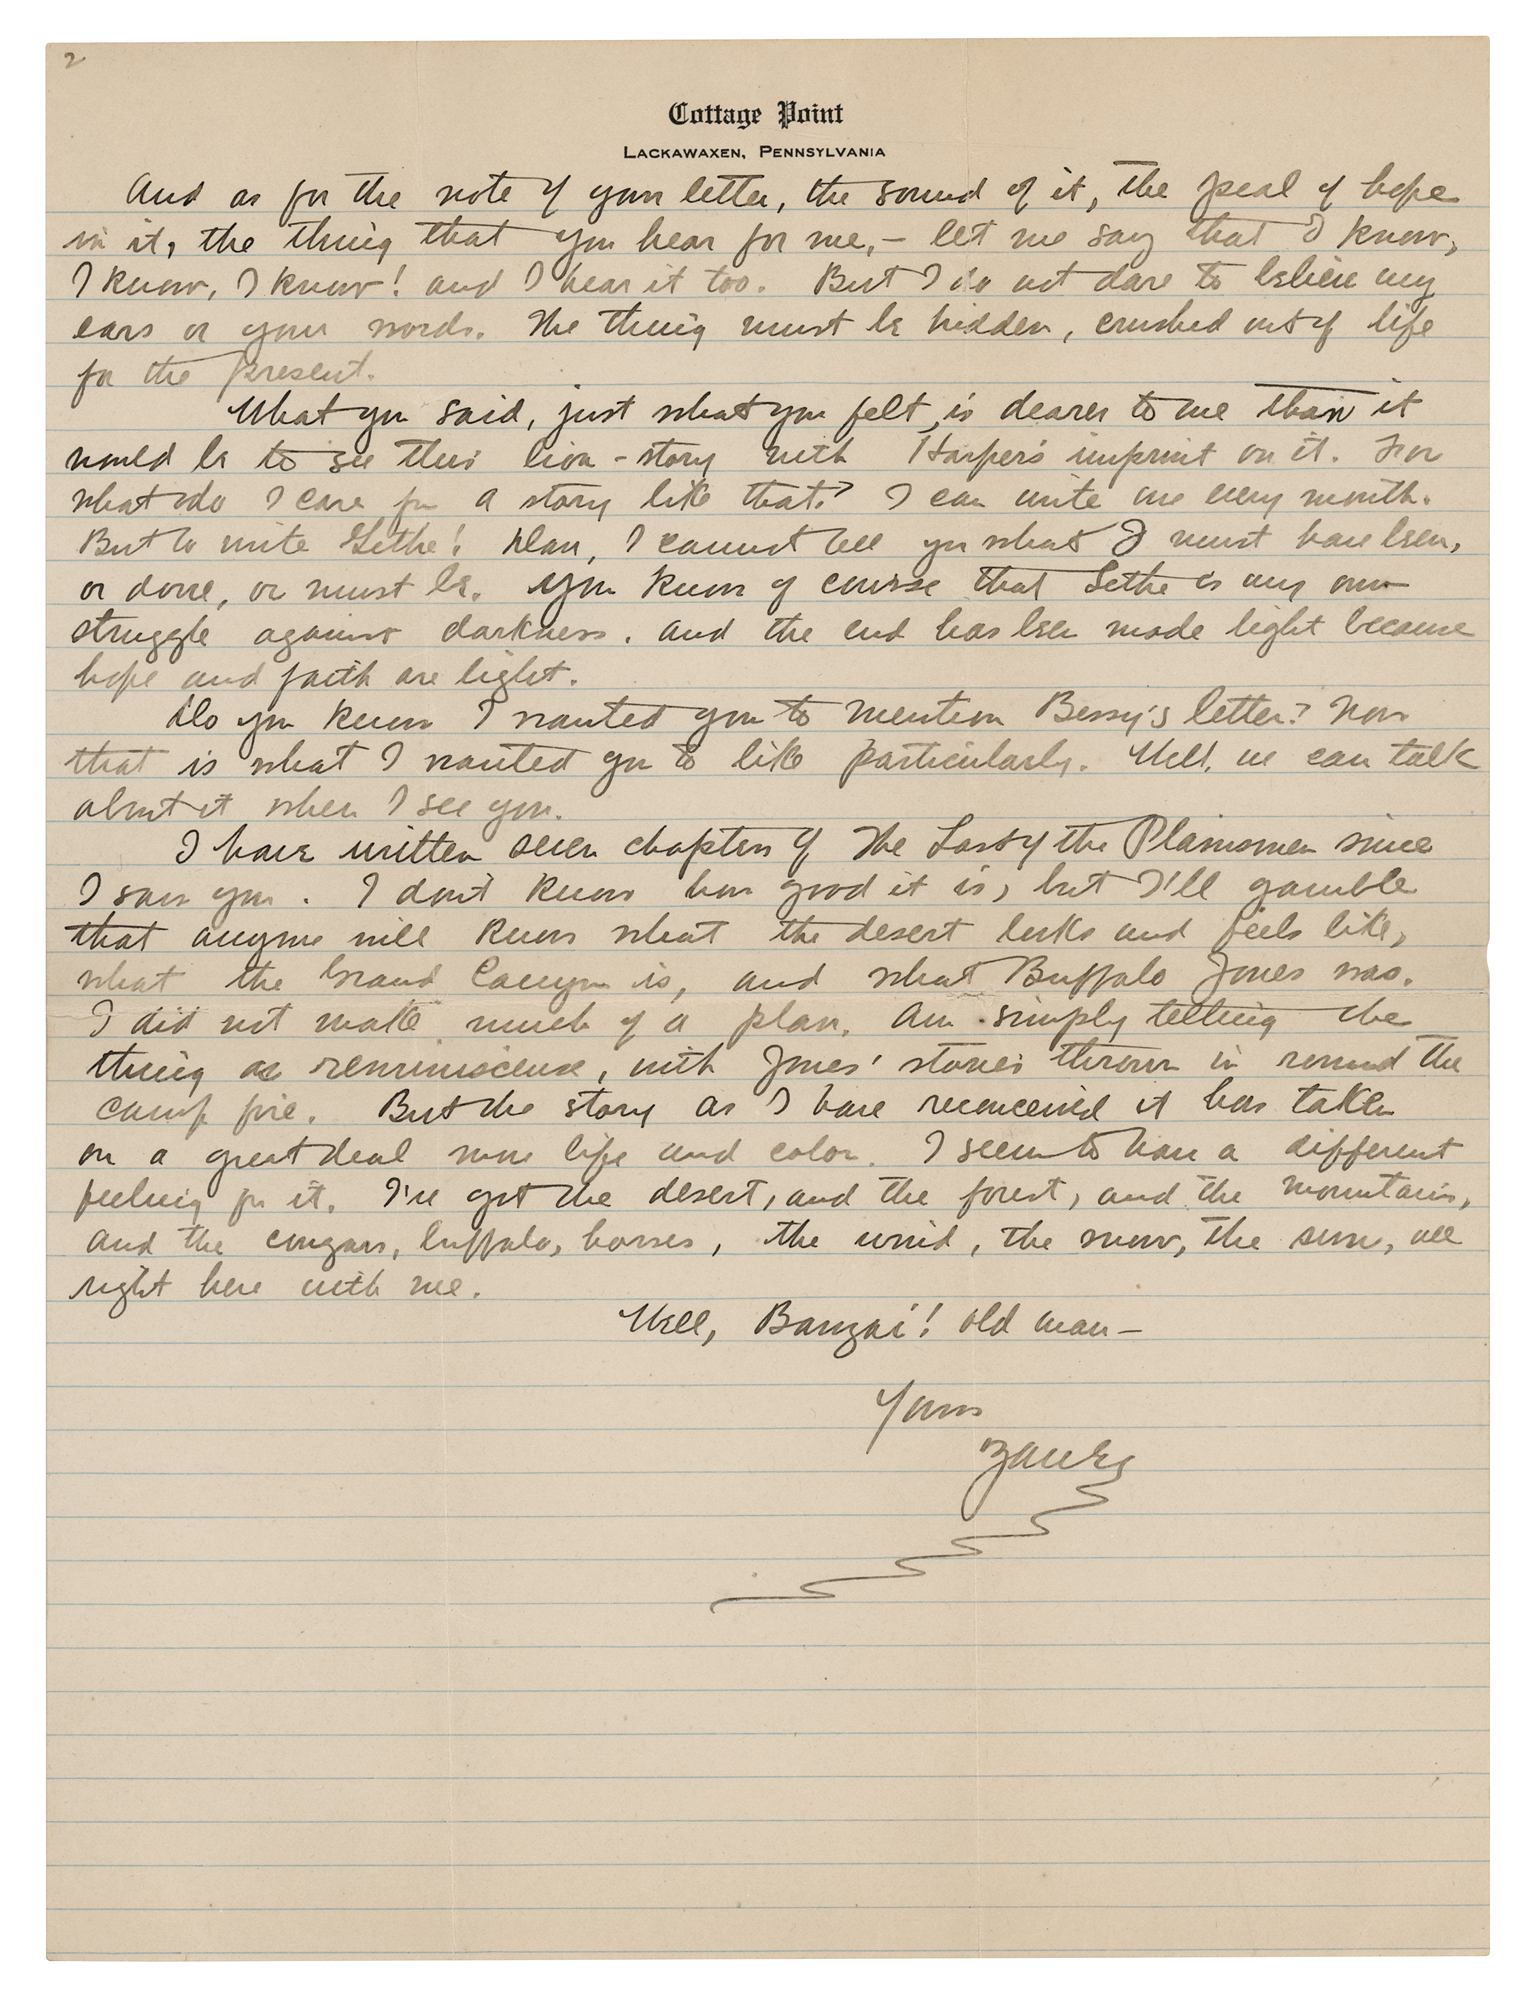 2
Cottage Point
LACKAWAXEN, PENNSYLVANIA
And as for the note of your letter, the sound of it, the peal of hope
in it, the thing that you hear for me, — let me say that I know,
I know, I know! and I hear it too. But I do not dare to believe my
ears or your words. The thing must be hidden, crushed out of life
for the present.
What you said, just what you felt, is dearer to me than it
would be to see this lion-story with Harper's imprint on it. For
what do I care for a story like that? I can write one every month.
But to write Lethe! Dan, I cannot tell you what I must have been,
or done, or must be. You know of course that Lethe is my own
struggle against darkness. And the end has been made light because
hope and faith are light.
Do you know I wanted you to mention Bessy's letter? Now
that is what I wanted you to like particularly. Well, we can talk
about it when I see you.
I have written seven chapters of The Last of the Plainsmen since
I saw you. I don't know how good it is, but I'll gamble
that anyone will know what the desert looks and feels like,
what the Grand Canyon is, and what Buffalo Jones was.
I did not make much of a plan. Am simply telling the
thing as reminiscense, with Jones' stories thrown in round the
camp fire. But the story as I have reconceived it has taken
on a great deal more life and color. I seem to have a different
feeling for it. I've got the desert, and the forest, and the mountains,
and the cougars, buffalo, horses, the wind, the snow, the sun, all
right here with me.
Well, Banzai! old man—
Yours
Zane